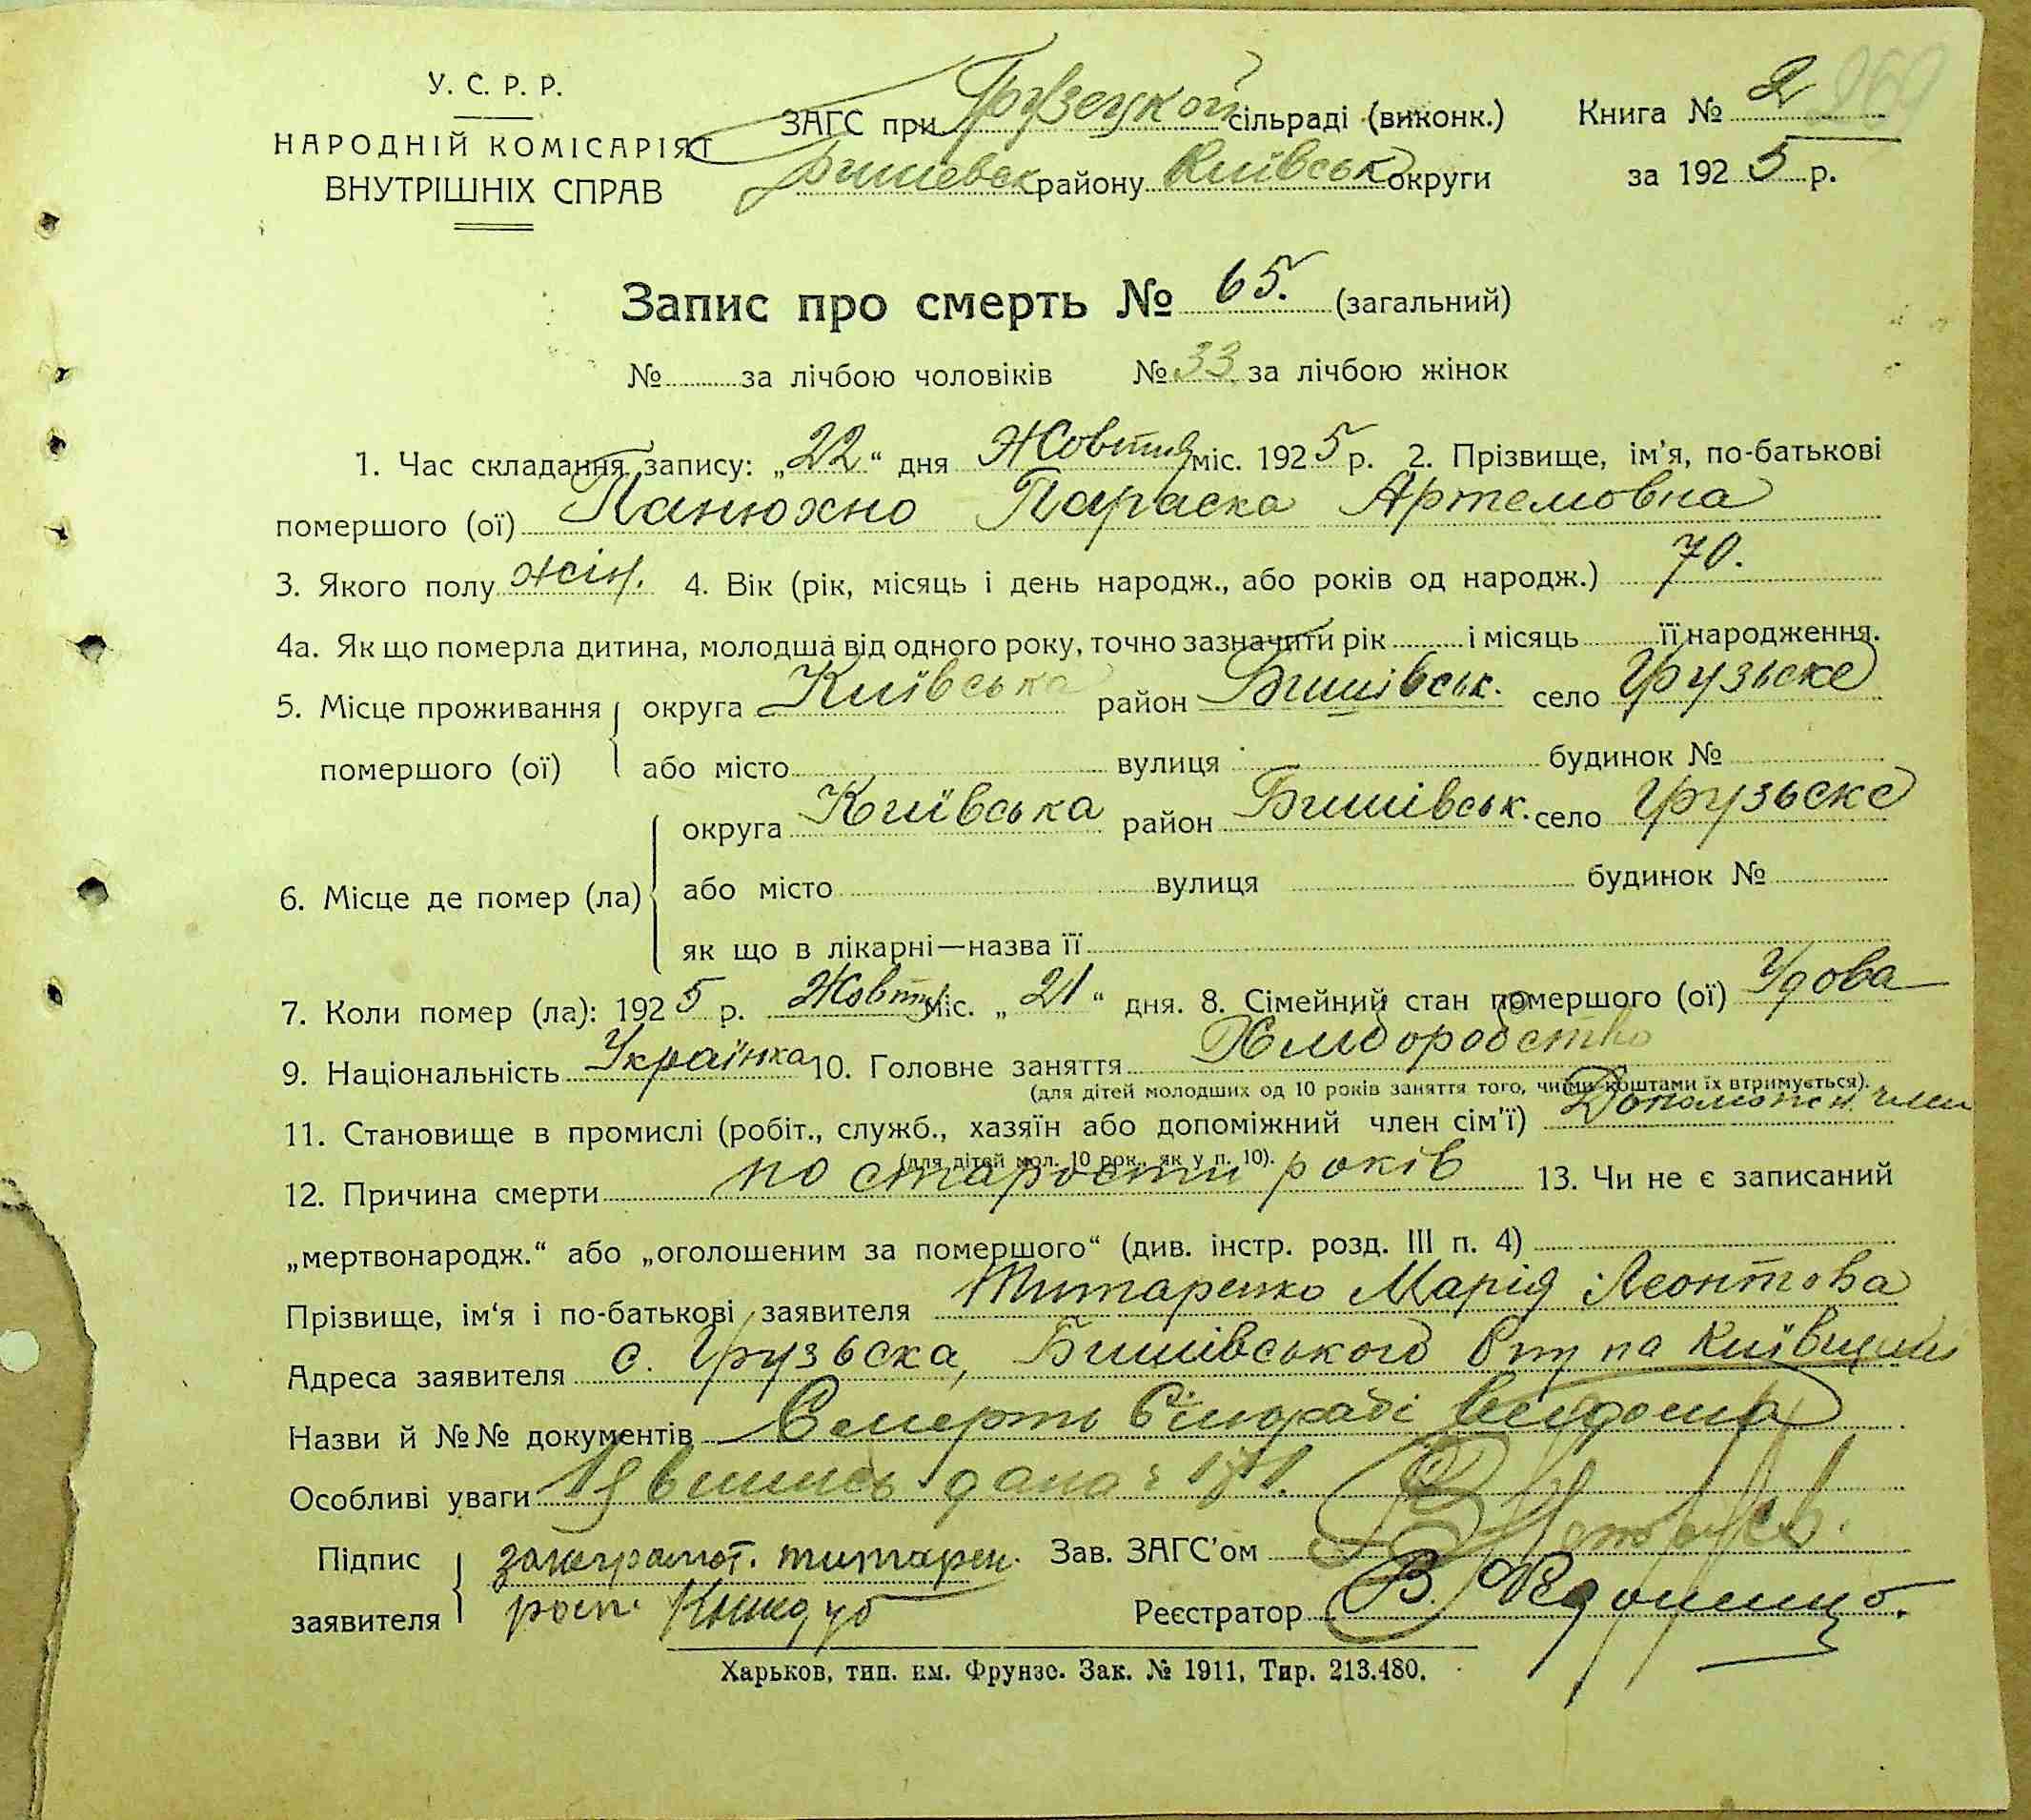 У. С. Р. Р.
НАРОДНІЙ КОМІСАРІЯТ
ВНУТРІШНІХ СПРАВ
ЗАГС при Грузецкой сільраді (виконк.) Книга № 2
Бишевск району Київськ округи за 1925 р.
Запис про смерть № 65. (загальний)
№ за лічбою чоловіків № 33 за лічбою жінок
1. Час складання запису: „22“ дня Жовтня міс. 1925 р. 2. Прізвище, ім'я, по-батькові
помершого (ої) Панюхно Параска Артемовна
3. Якого полу жін. 4. Вік (рік, місяць і день народж., або років од народж.) 70.
4а. Як що померла дитина, молодша від одного року, точно зазначити рік і місяць її народження.
5. Місце проживання округа Київська район Бишівськ. село Грузьске
помершого (ої) або місто вулиця будинок №
округа Київська район Бишівськ. село Грузьске
6. Місце де помер (ла) або місто вулиця будинок №
як що в лікарні—назва її
7. Коли помер (ла): 1925 р. Жовтн міс. „21“ дня. 8. Сімейний стан помершого (ої) Удова
9. Національність Українка 10. Головне заняття Хліборобство
(для дітей молодших од 10 років заняття того, чиїми коштами їх втримується).
11. Становище в промислі (робіт., служб., хазяїн або допоміжний член сім'ї) Допоможн. член
(для дітей мол. 10 рок., як у п. 10).
12. Причина смерти по старости років 13. Чи не є записаний
„мертвонародж.“ або „оголошеним за помершого“ (див. інстр. розд. III п. 4)
Прізвище, ім'я і по-батькові заявителя Титаренко Марія Леонтова
Адреса заявителя с. Грузьска, Бишівського на Київщині
Назви й №№ документів Смерть Сільраді
Особливі уваги
Підпис титарен. Зав. ЗАГС'ом
заявителя росп. Реєстратор В.
Харьков, тип. им. Фрунзе. Зак. № 1911, Тир. 213.480.